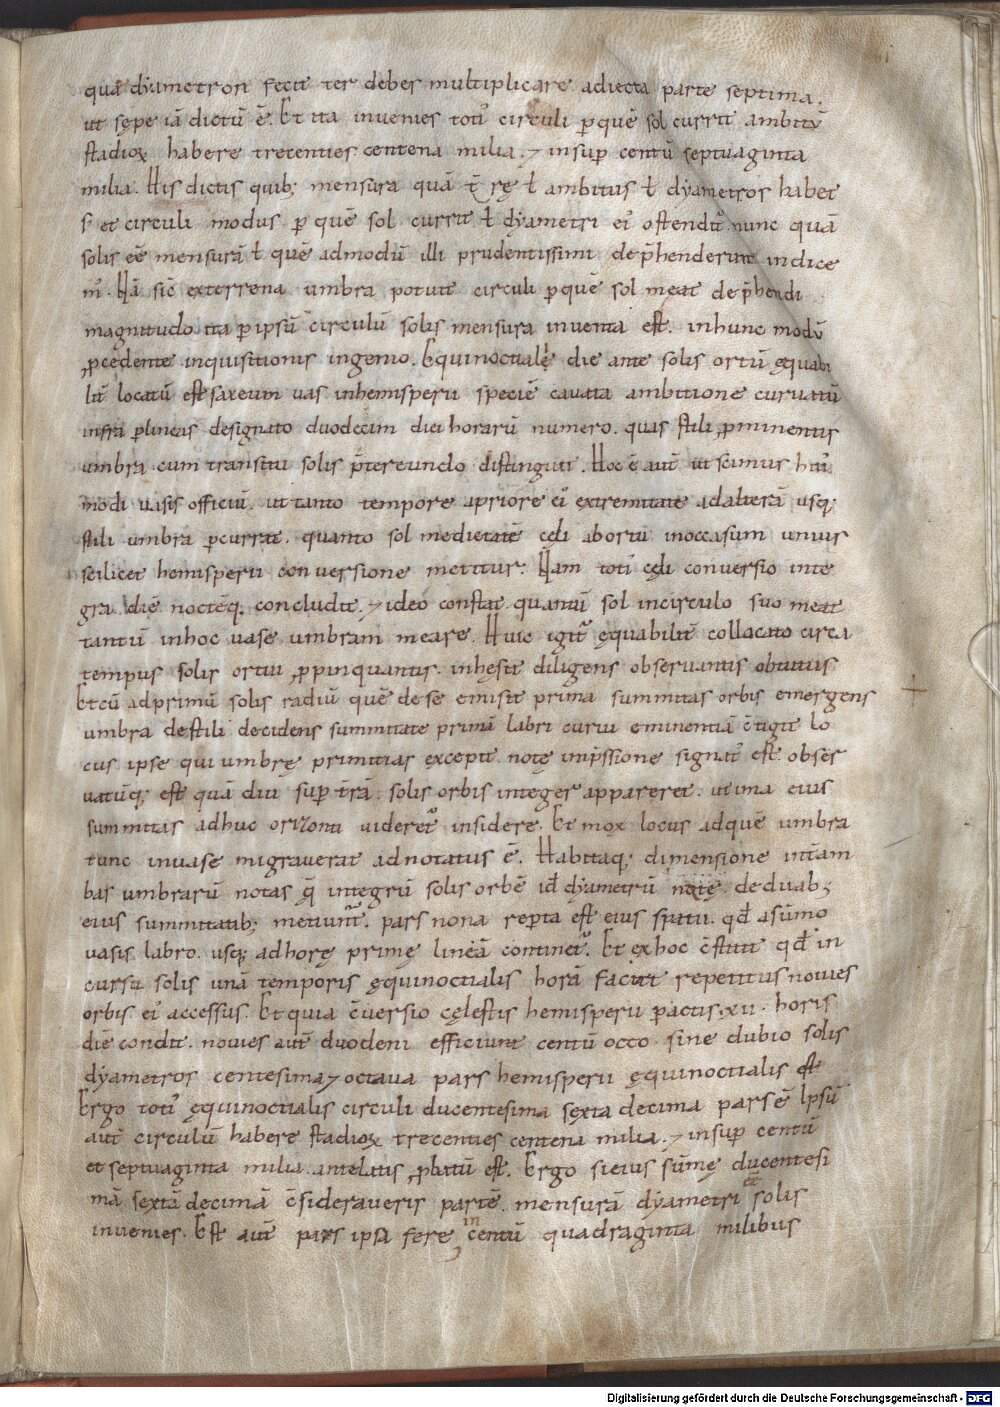 quā dyametron fecit ter debes multiplicare adiecta parte septima.
ut sępe iā dictū ē. Et ita invenies totiꝰ circuli ꝑ quē sol currit ambitū
stadioꝝ habere trecenties centena milia. ⁊ insuꝑ centū septuaginta
milia. His dictis quibꝫ mensura quā t̄ rę ł ambitus ł dyametros habet
s; et circuli modus ꝑ quē sol currit ł dyametri eiꝰ ostenditᷣ. nunc quā
solis eē mensurā ł quē admodū illi prudentissimi dep̄henderunt indice
mꝰ. Nā sic̄ exterrena umbra potuit circuli ꝑ quē sol meat dep̄hendi
magnitudo. ita ꝑ ipsū circulū solis mensura inventa est. inhunc modū
ꝓcedente inquisitionis ingenio. Equinoctiale die ante solis ortū ęquabi
lit̄ locatū est saxeum vas inhemisperii speciē cavata ambitione curvatū
infra ꝑ lineas designato duodecim diei horarū numero. quas stili ꝓminentis
umbra cum transitu solis p̄tereundo distinguit. Hoc ē aut̄ ut scimus huiꝰ
modi vasis officiū. ut tanto tempore apriore eiꝰ extremitate adalterā usqꝫ
stili umbra ꝑcurrat. quanto sol medietatē cęli abortu inoccasum unius
scilicet hemisperii conversione metitur. Nam totiꝰ cęli conversio inte
gra die noctēqꝫ concludit. ⁊ ideo constat quantū sol incirculo suo meat
tantū inhoc vase umbram meare. Huic igitᷣ ęquabilit̄ collocato circa
tempus solis ortu ꝓpinquantis. inhęsit diligens observantis obtutus
Et cū adprimū solis radiū quē dese emisit prima summitas orbis emergens
umbra de stili decidens summitate primā labri curvi eminentiā c̄tigit lo
cus ipse qui umbrę primitias excepit. notę imp̄ssione signatꝰ est. obser
vatūqꝫ est quā diu suꝑ t̄rā. solis orbis integer appareret. ut ima eius
summitas adhuc orizonti videretᷣ insidere. Et mox locus adquē umbra
tunc invase migraverat adnotatus ē. Habitaqꝫ dimensione int̄ am
bas umbrarū notas quę integrū solis orbē id̄ dyametrū notę. de duabꝫ
eius summitatibꝫ metiunt̄. pars nona reꝑta est eius spatii. qd̄ a sūmo
vasis labro. usqꝫ ad horę primę lineā continetᷣ. Et ex hoc c̄stitit qd̄ in
cursu solis unā temporis ęquinoctialis horā faciat repetitus novies
orbis eiꝰ accessus. Et quia c̄versio cęlestis hemisperii ꝑactis. xii. horis
diē condit. novies aut̄ duodeni efficiunt centū octo. sine dubio solis
dyametros centesima ⁊ octava pars hemisperii ęquinoctialis est
Ergo totiꝰ ęquinoctialis circuli ducentesima sexta decima pars ē Ipsū
aut̄ circulū habere stadioꝝ trecenties centena milia. ⁊ insuꝑ centū
et septuaginta milia antelatis ꝓbatū est. Ergo si eius sūmę ducentesi
mā sextā decimā c̄sideraveris partē. mensurā dyametri solis
invenies. Est aut̄ pars ipsa fere in centū quadraginta milibus
Digitalisierung gefördert durch die Deutsche Forschungsgemeinschaft - DFG